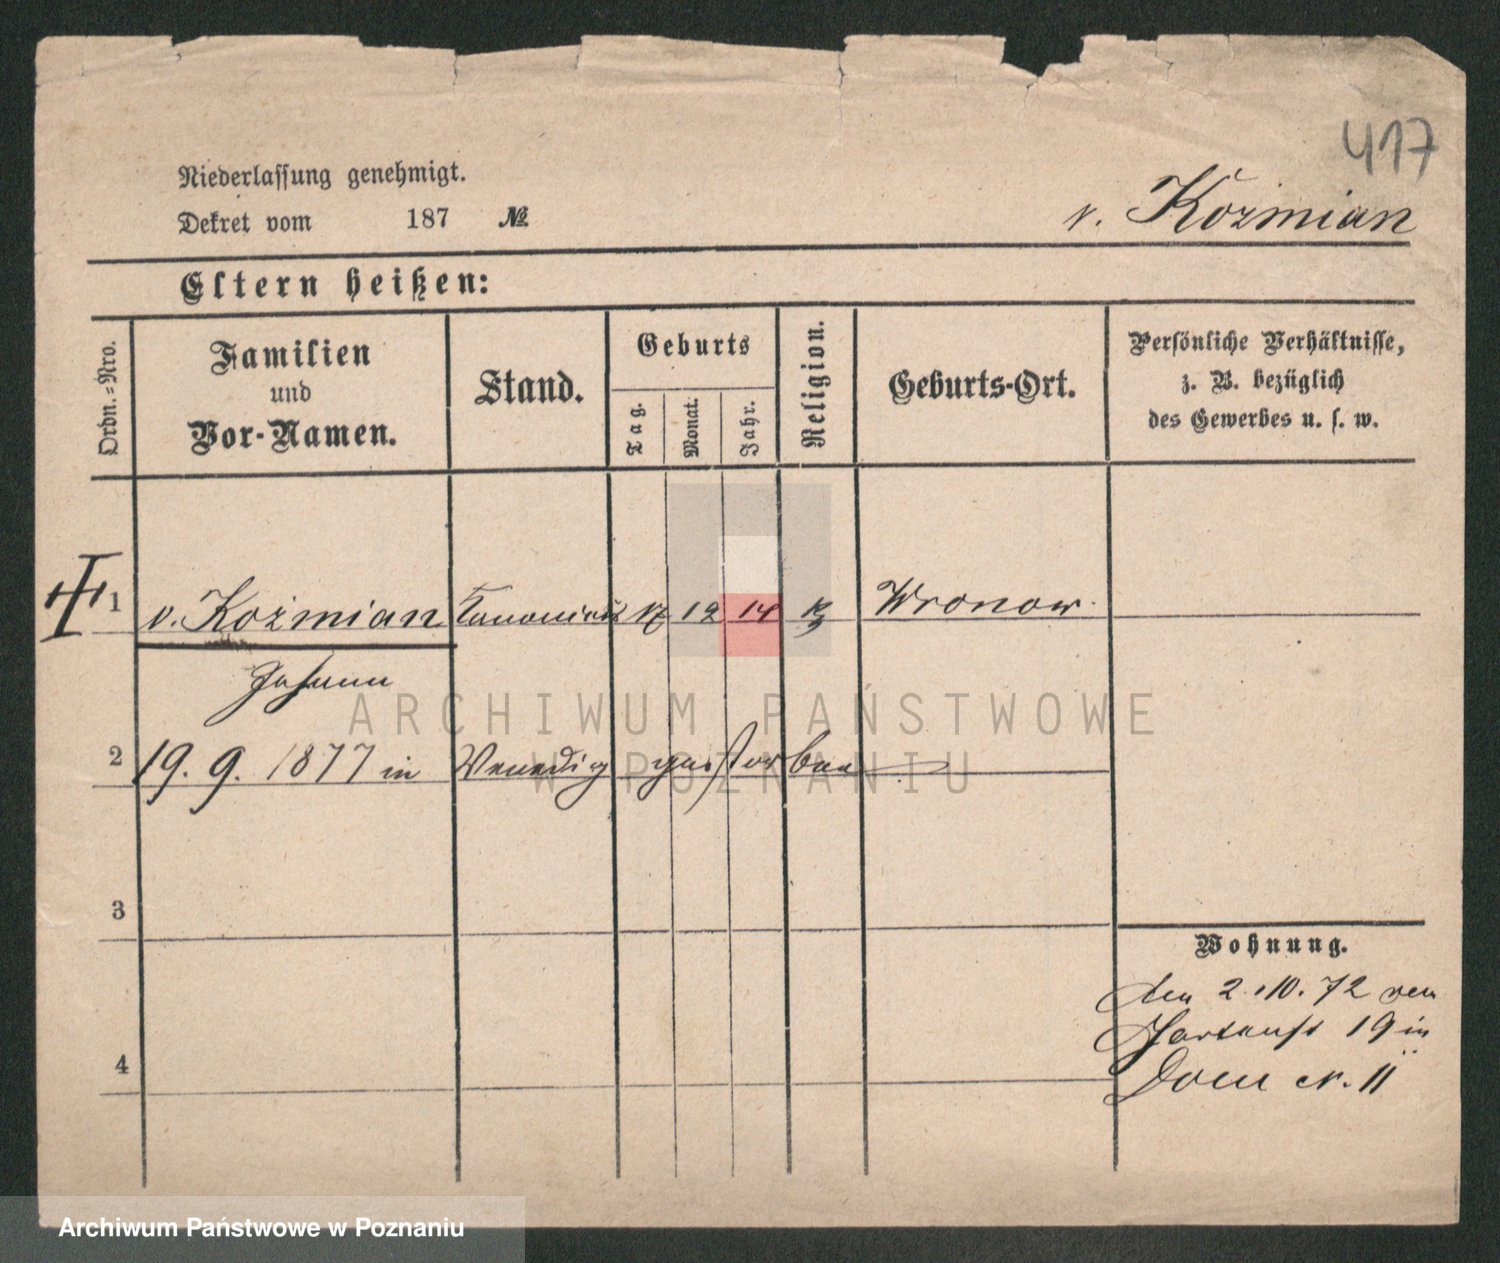 417
Niederlassung genehmigt.
Dekret vom 187 №
v. Koźmian
Eltern heißen:
Ordn.-Nro.
Familien
und
Vor-Namen.
Stand.
Geburts
Tag.
Monat.
Jahr.
Religion.
Geburts-Ort.
Persönliche Verhältnisse,
z. B. bezüglich
des Gewerbes u. s. w.
1 v. Koźmian Canonicus 12 14 Wronow.
Johann
ARCHIWUM PAŃSTWOWE
W POZNANIU
2 19. 9. 1877 in Venedig gestorben
3
Wohnung.
den 2.10.72 von
19 in
Dom N. 11
4
Archiwum Państwowe w Poznaniu